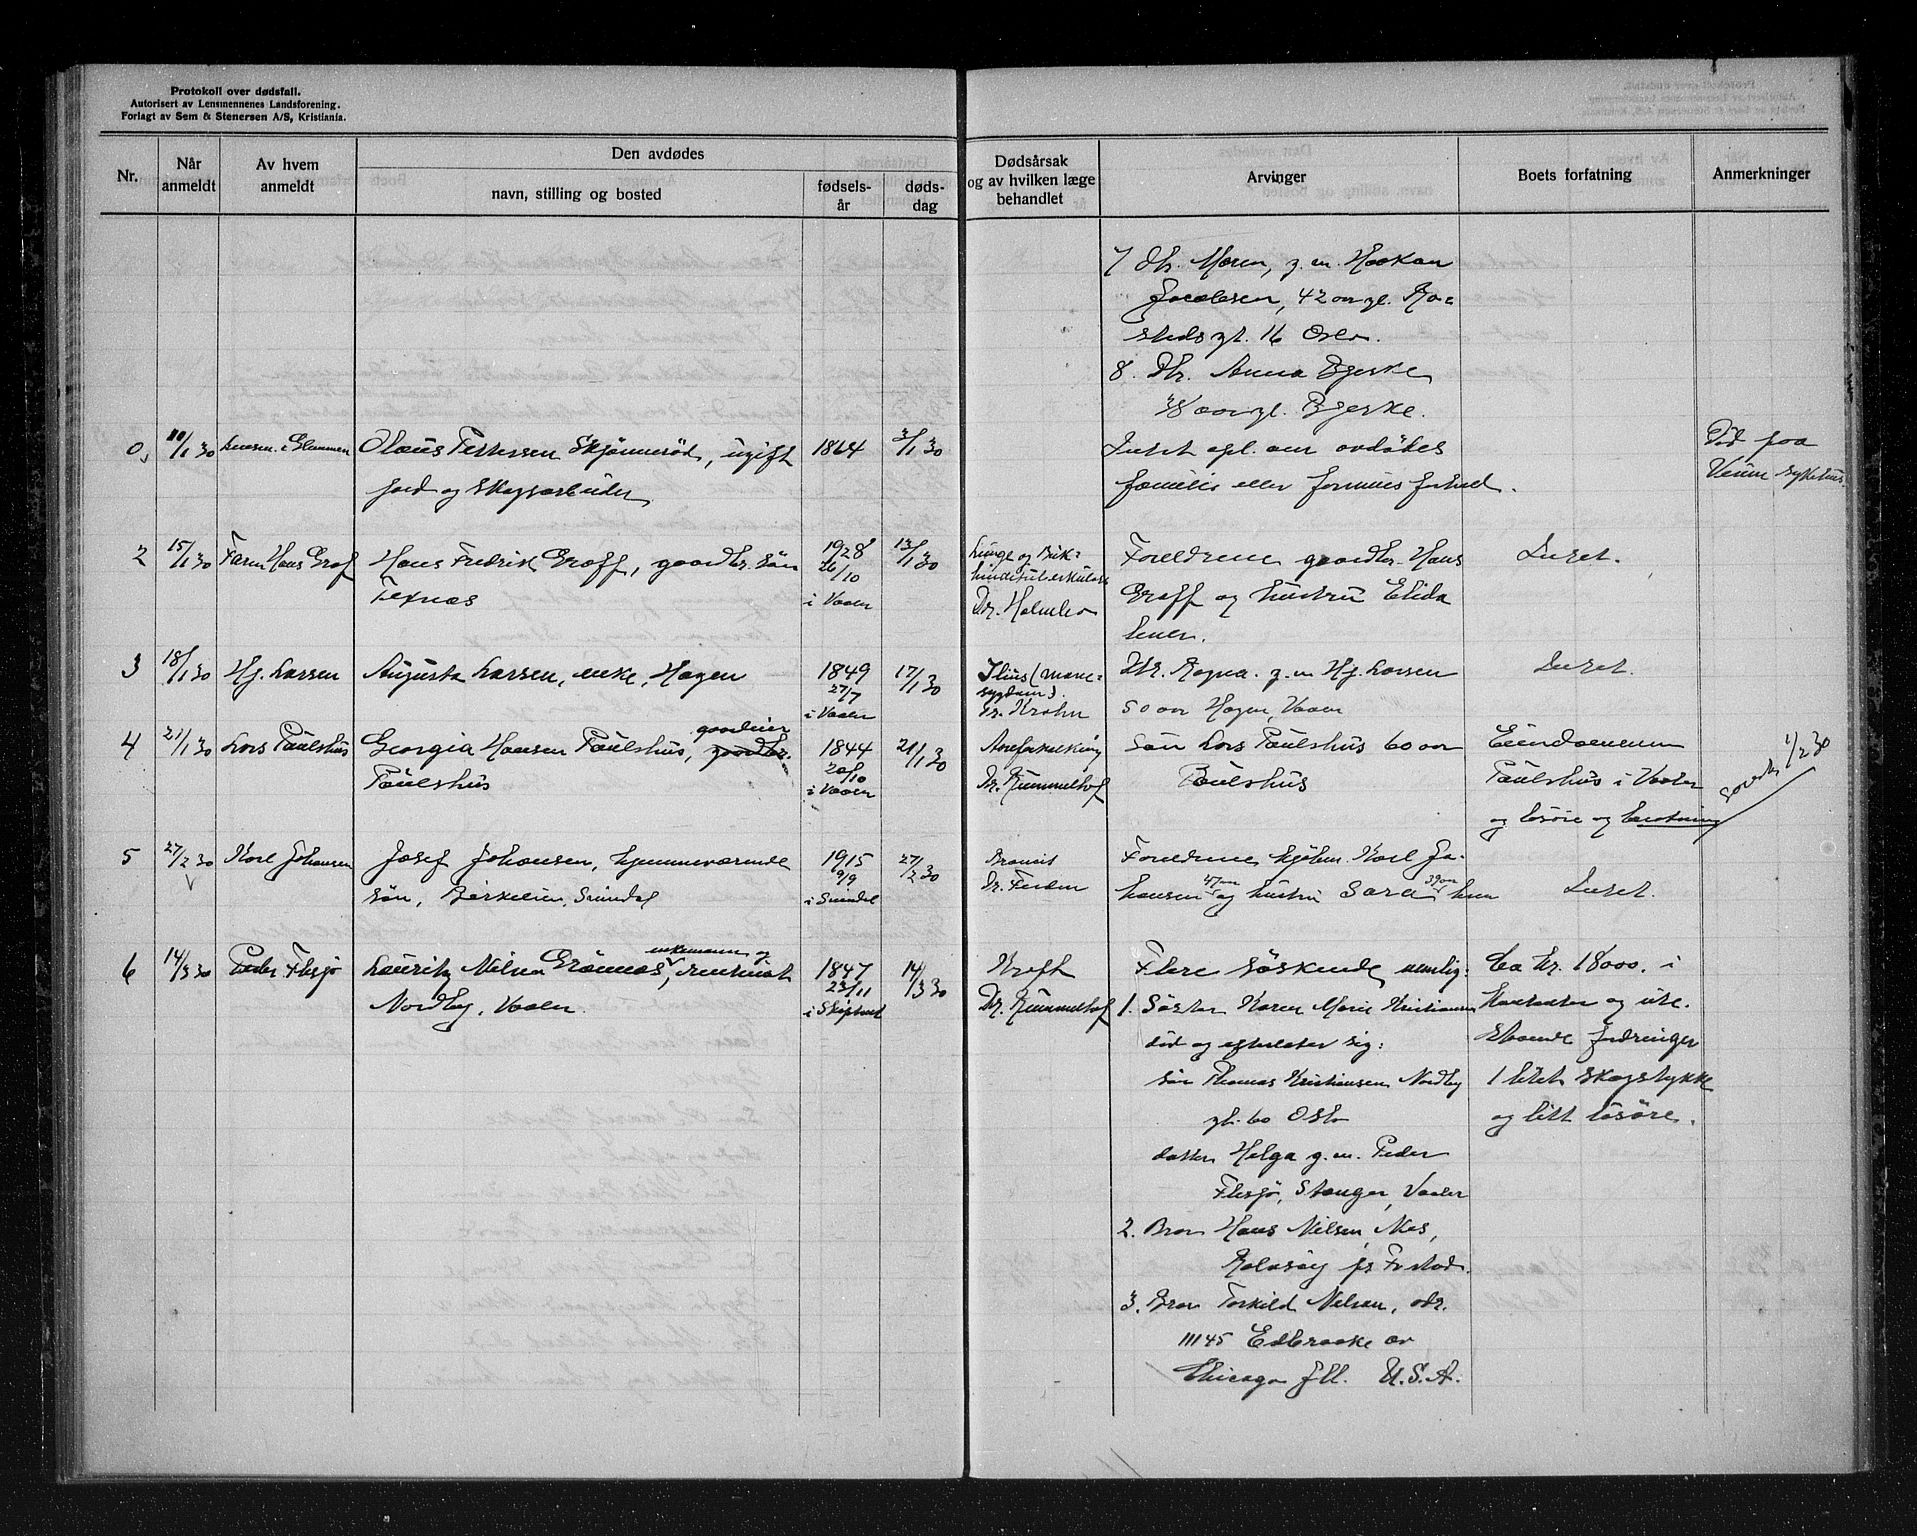 Protokoll over dødsfall.
Autorisert av Lensmennenes Landsforening.
Forlagt av Sem & Stenersen A/S, Kristiania.
Nr.
Når anmeldt
Av hvem anmeldt
Den avdødes
navn, stilling og bosted
fødsels-år
døds-dag
Dødsårsak og av hvilken læge behandlet
Arvinger
Boets forfatning
Anmerkninger
7 Dtr. Maren, g. m. Haakan
Jacobsen, 42 aar gl. Ro=
stedsgt. 16 Oslo.
8. Dtr. Anna Bjerke
38 aar gl. Bjerke.
0, 11/1 30 Lensm. i Glemmen
Olaus Pettersen Skjønnerød, ugift
jord og skogsarbeider
1864
3/1 30
Intet opl. om avdødes
familie eller formuesforhold.
Død paa
Veum sykehus.
2 15/1 30 Faren Hans Grof
Hans Fredrik Groff, gaardbr. søn
Texnæs
1928
26/10
i Vaaler
13/1 30
Lunge og Buk=
hindetuberkulose
Dr. Holmbo
Foreldrene gaardbr. Hans
Groff og hustru Elida
Intet.
3 18/1 30 Hj. Larssen
Augusta Larssen, enke, Hagen
1849
27/7
i Vaaler
17/1 30
Ilius (mave=
sygdom).
Dr. Krohn
Dtr. Ragna g. m. Hj. Larssen
50 aar Hagen, Vaaler
Intet.
4 21/1 30 Lars Paulshus
Georgia Hansen Paulshus, gaardeier
Paulshus
1844
20/10
i Vaaler
21/1 30
Aareforkalkning
Dr. Rummelhof
Søn Lars Paulshus 60 aar
Paulshus
Eiendommen
Paulshus i Vaaler
og løsøre og besetning
1/2 30
5 27/2 30 Karl Johansen
Josef Johansen, hjemmeværende
søn, Birkelien, Svindal
1915
9/9
i Svindal
27/2 30
Dr. Feiden
Foreldrene Karl Jo-
hansen 47 aar og hustru Sara 39 aar
Intet.
6 14/3 30 Peder Flesjø
Lauritz Nilsen Grønnæs, enkemann og rentenist
Nordby, Vaaler.
1847
23/11
i Skiptvet
14/3 30
Kreft
Dr. Rummelhof
Flere søskende nemlig:
1. Søster Karen Marie Kristiansen
død og efterlater sig:
søn Thomas Kristiansen Nordby
gt. 60 Oslo
datter Helga g. m. Peder
Flesjø, Stanger, Vaaler
2. Bror Hans Nilsen, Nes,
Rolvsøy pr Frstad.
3. Bror Torkild Nilsen, adr.
11145 Edbrooke av
Chicago Ill. U.S.A.
Ca kr. 18000. i
kontanter og ute-
staaende fordringer
1 litet skogstykke
og litt løsøre.